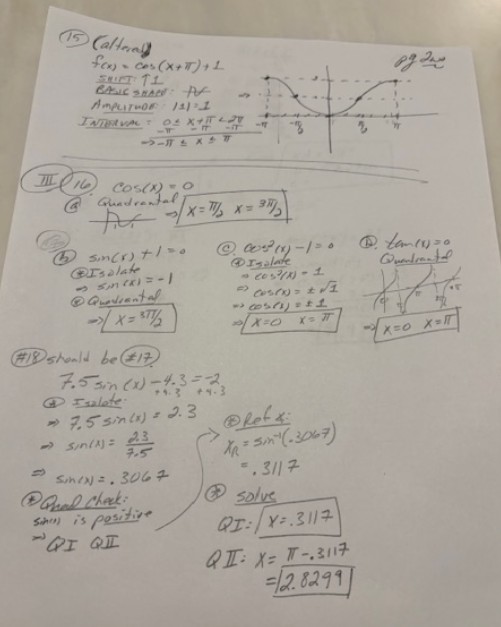 pg two
(15) (altered)
f(x) = cos(x+π)+1
SHIFT: ↑1
BASIC SHAPE:
AMPLITUDE: |1|=1
INTERVAL: 0 ≤ x+π < 2π
-π -π -π
⇒ -π ≤ x ≤ π
-π -π/2 π/2 π
III (16) cos(x) = 0
(a) Quadrantal
⇒ x = π/2 x = 3π/2
(b) sin(x) + 1 = 0
Isolate
⇒ sin(x) = -1
Quadrantal
⇒ x = 3π/2
(c) cos²(x) - 1 = 0
Isolate
⇒ cos²(x) = 1
⇒ cos(x) = ±√1
⇒ cos(x) = ±1
⇒ x=0 x=π
(D) tan(x) = 0
Quadrantal
⇒ x=0 x=π
#18 should be #17
7.5 sin(x) - 4.3 = -2
+4.3 +4.3
Isolate:
⇒ 7.5 sin(x) = 2.3
⇒ sin(x) = 2.3/7.5
⇒ sin(x) = .3067
Quad Check:
sin(x) is positive
⇒ QI QII
Ref ∡:
x_R = sin⁻¹(.3067)
= .3117
solve
QI: x = .3117
QII: x = π - .3117
= 2.8299